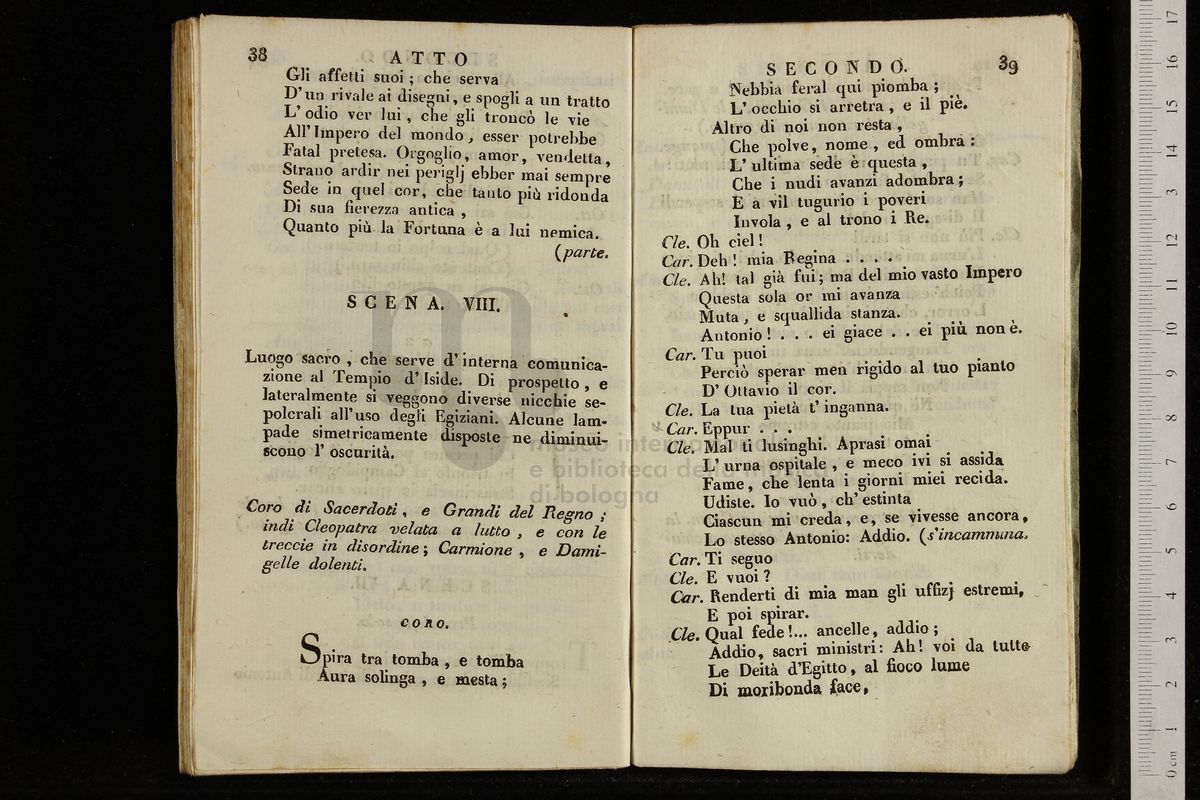 38
ATTO
Gli affetti suoi ; che serva
D' un rivale ai disegni, e spogli a un tratto
L' odio ver lui , che gli troncò le vie
All' Impero del mondo , esser potrebbe
Fatal pretesa. Orgoglio, amor, vendetta,
Strano ardir nei periglj ebber mai sempre
Sede in quel cor, che tanto più ridonda
Di sua fierezza antica ,
Quanto più la Fortuna è a lui nemica.
(parte.
SCENA. VIII.
Luogo sacro , che serve d' interna comunica-
zione al Tempio d' Iside. Di prospetto , e
lateralmente si veggono diverse nicchie se-
polcrali all' uso degli Egiziani. Alcune lam-
pade simetricamente disposte ne diminui-
scono l' oscurità.
Coro di Sacerdoti , e Grandi del Regno ;
indi Cleopatra velata a lutto , e con le
treccie in disordine ; Carmione , e Dami-
gelle dolenti.
CORO.
Spira tra tomba , e tomba
Aura solinga , e mesta ;
SECONDO.
39
Nebbia feral qui piomba ;
L' occhio si arretra , e il piè.
Altro di noi non resta ,
Che polve, nome , ed ombra :
L' ultima sede è questa ,
Che i nudi avanzi adombra ;
E a vil tugurio i poveri
Invola , e al trono i Re.
Cle. Oh ciel !
Car. Deh ! mia Regina . . . .
Cle. Ah! tal già fui ; ma del mio vasto Impero
Questa sola or mi avanza
Muta , e squallida stanza.
Antonio ! . . . ei giace . . ei più non è.
Car. Tu puoi
Perciò sperar men rigido al tuo pianto
D' Ottavio il cor.
Cle. La tua pietà t' inganna.
Car. Eppur . . .
Cle. Mal ti lusinghi. Aprasi omai
L' urna ospitale , e meco ivi si assida
Fame, che lenta i giorni miei recida.
Udiste. Io vuò , ch' estinta
Ciascun mi creda, e, se vivesse ancora,
Lo stesso Antonio: Addio. (s'incammina.
Car. Ti seguo
Cle. E vuoi ?
Car. Renderti di mia man gli uffizj estremi,
E poi spirar.
Cle. Qual fede !... ancelle, addio ;
Addio, sacri ministri : Ah! voi da tutte
Le Deità d'Egitto, al fioco lume
Di moribonda face,
museo internazionale
e biblioteca della musica
di bologna
0 cm 1 2 3 4 5 6 7 8 9 10 11 12 13 14 15 16 17